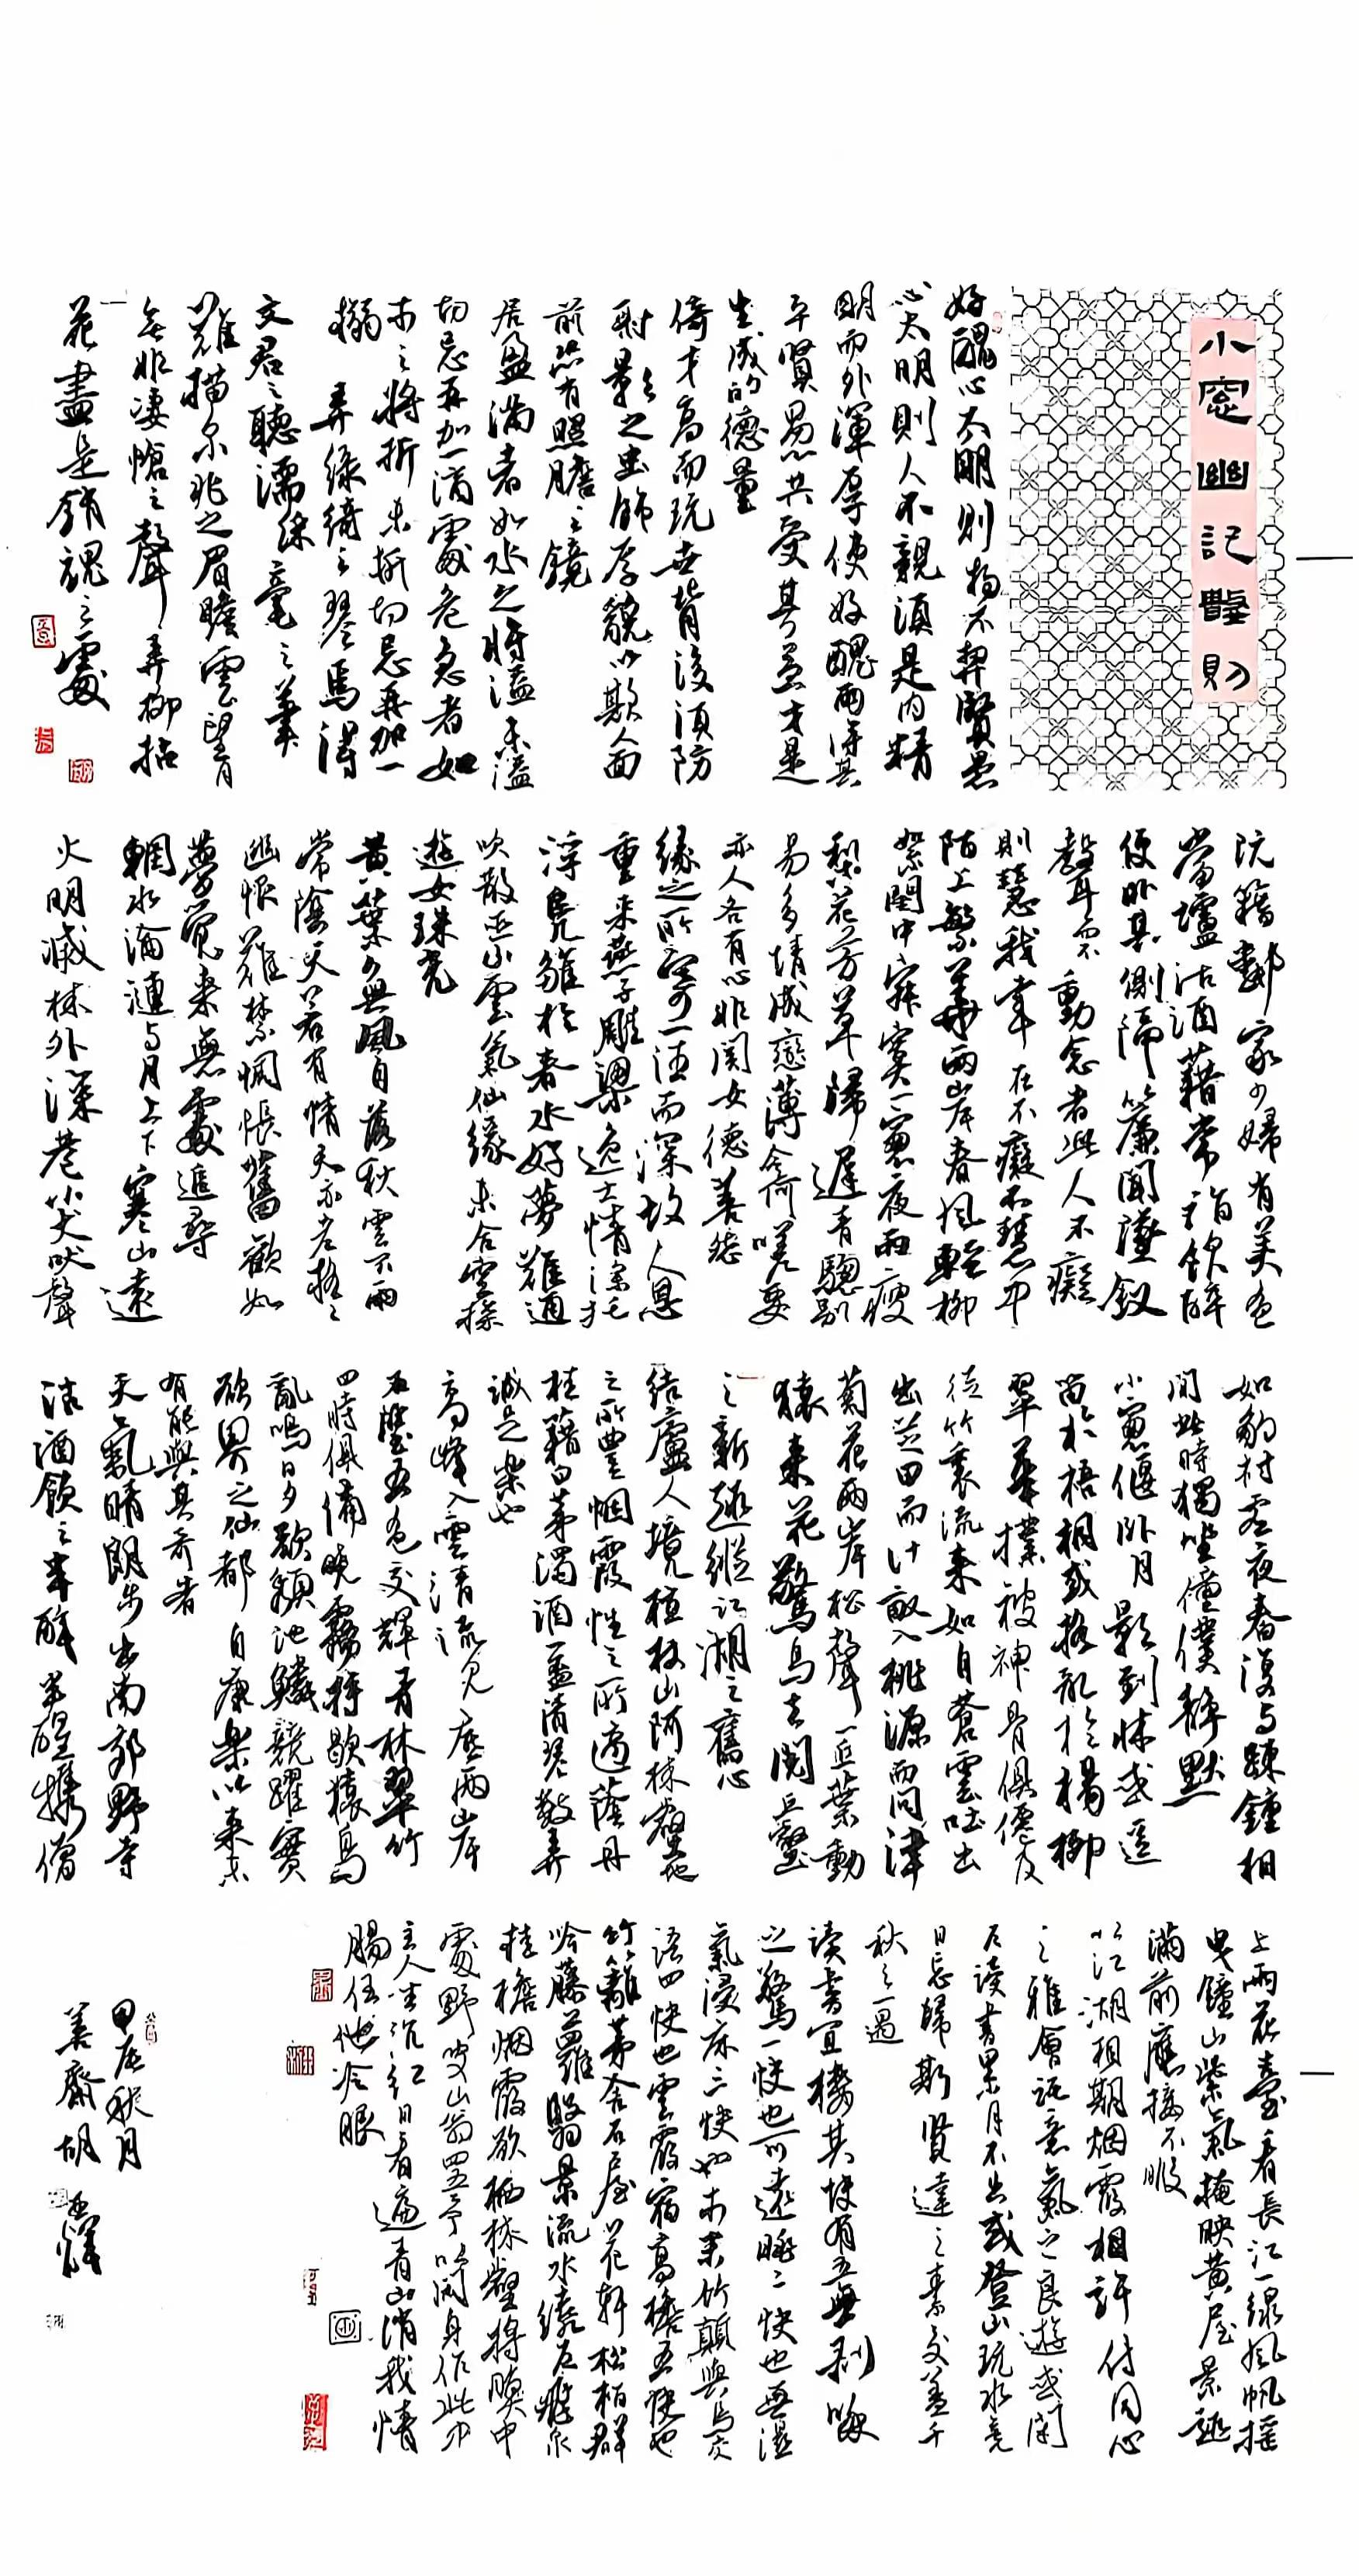 小窓幽記數則
好醜心太明則物不契賢愚
心太明則人不親須是內精
明而外渾厚使好醜兩得其
平賢愚共受其益才是
生成的德量
倚才高而玩世背後須防
射影之虫飾厚貌以欺人面
前恐有照膽之鏡
居盈滿者如水之將溢未溢
切忌再加一滴處危急者如
木之將折未折切忌再加一
搦 弄綠綺之琴焉得
文君之聽濡綵毫之筆
難描京兆之眉瞻雲望月
無非凄愴之聲弄柳拈
花盡是銷魂之處
阮籍鄰家少婦有美色
當壚沽酒藉常詣飲醉
便卧其側隔簾聞墮釵
聲而不動念者此人不癡
則慧我幸在不癡不慧中
陌上繁華兩岸春風輕柳
絮閨中寂寞一窗夜雨瘦
梨花芳草歸遲青驄別
易多情成戀薄命何嗟要
亦人各有心非關女德善怨
緣之所寄一往而深故人恩
重來燕子雕梁逸士情深托
浮鳧雛於春水好夢難通
吹散巫山雲氣仙緣未合空探
遊女珠光
黃葉無風自落秋雲不雨
常陰天若有情天亦老搖搖
幽恨難禁惆悵舊歡如
夢覺來無處追尋
輞水淪漣與月上下寒山遠
火明滅林外深巷小犬吠聲
如豹村虛夜舂復與疎鐘相
間此時獨坐僮僕靜默
小窗偃卧月影到牀或逗
留於梧桐或搖亂於楊柳
翠華撲被神骨俱僊及
從竹裏流來如自蒼雲吐出
出芝田而計畝入桃源而問津
菊花兩岸松聲一丘葉動
猿來花驚鳥去閱丘壑
之新趣縱江湖之舊心
結廬人境植杖山阿林壑地
之所豐烟霞性之所適蔭丹
桂藉白茅濁酒一盃清琴數弄
誠足樂也
高峰入雲清流見底兩山岸
石壁五色交輝青林翠竹
四時俱備曉霧將歇猿鳥
亂鳴日夕欲頹池鱗競躍實
欲界之仙都自康樂以來未
有能與其奇者
天氣晴朗步出南郊野寺
沽酒飲之半醉半醒攜僧
上雨花臺看長江一線風帆搖
曳鐘山紫氣掩映黃屋景趣
滿前應接不暇
以江湖相期烟霞相許付同心
之雅會託意氣之良遊或閉
戶讀書累月不出或登山玩水竟
日忘歸斯賢達之素交蓋千
秋之一遇
讀書宜樓其快有五無剥啄
之驚一快也可遠眺二快也無濕
氣浸床三快也木末竹顛與鳥交
語四快也雲霞宿高檐五快也
竹籬茅舍石屋花軒松柏群
吟藤蘿翳景流水繞戶飛泉
挂檐烟霞欲栖林壑將暝中
處野叟山翁四五予以閑身作此中
主人坐沉紅日看遍青山消我情
腸任他冷眼
甲辰秋月